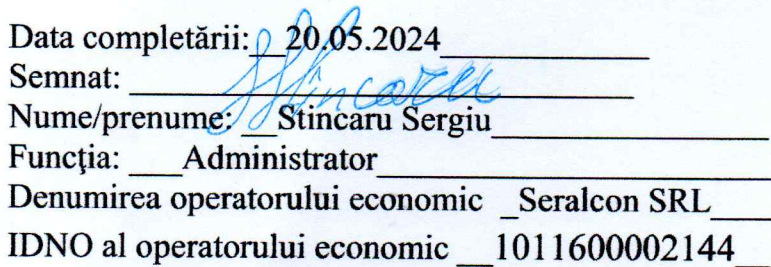 Data completării:__20.05.2024________________
Semnat: ______________________________________
Nume/prenume:___Stincaru Sergiu_____________________
Funcţia: ___Administrator______________________________
Denumirea operatorului economic _Seralcon SRL_____
IDNO al operatorului economic __1011600002144__